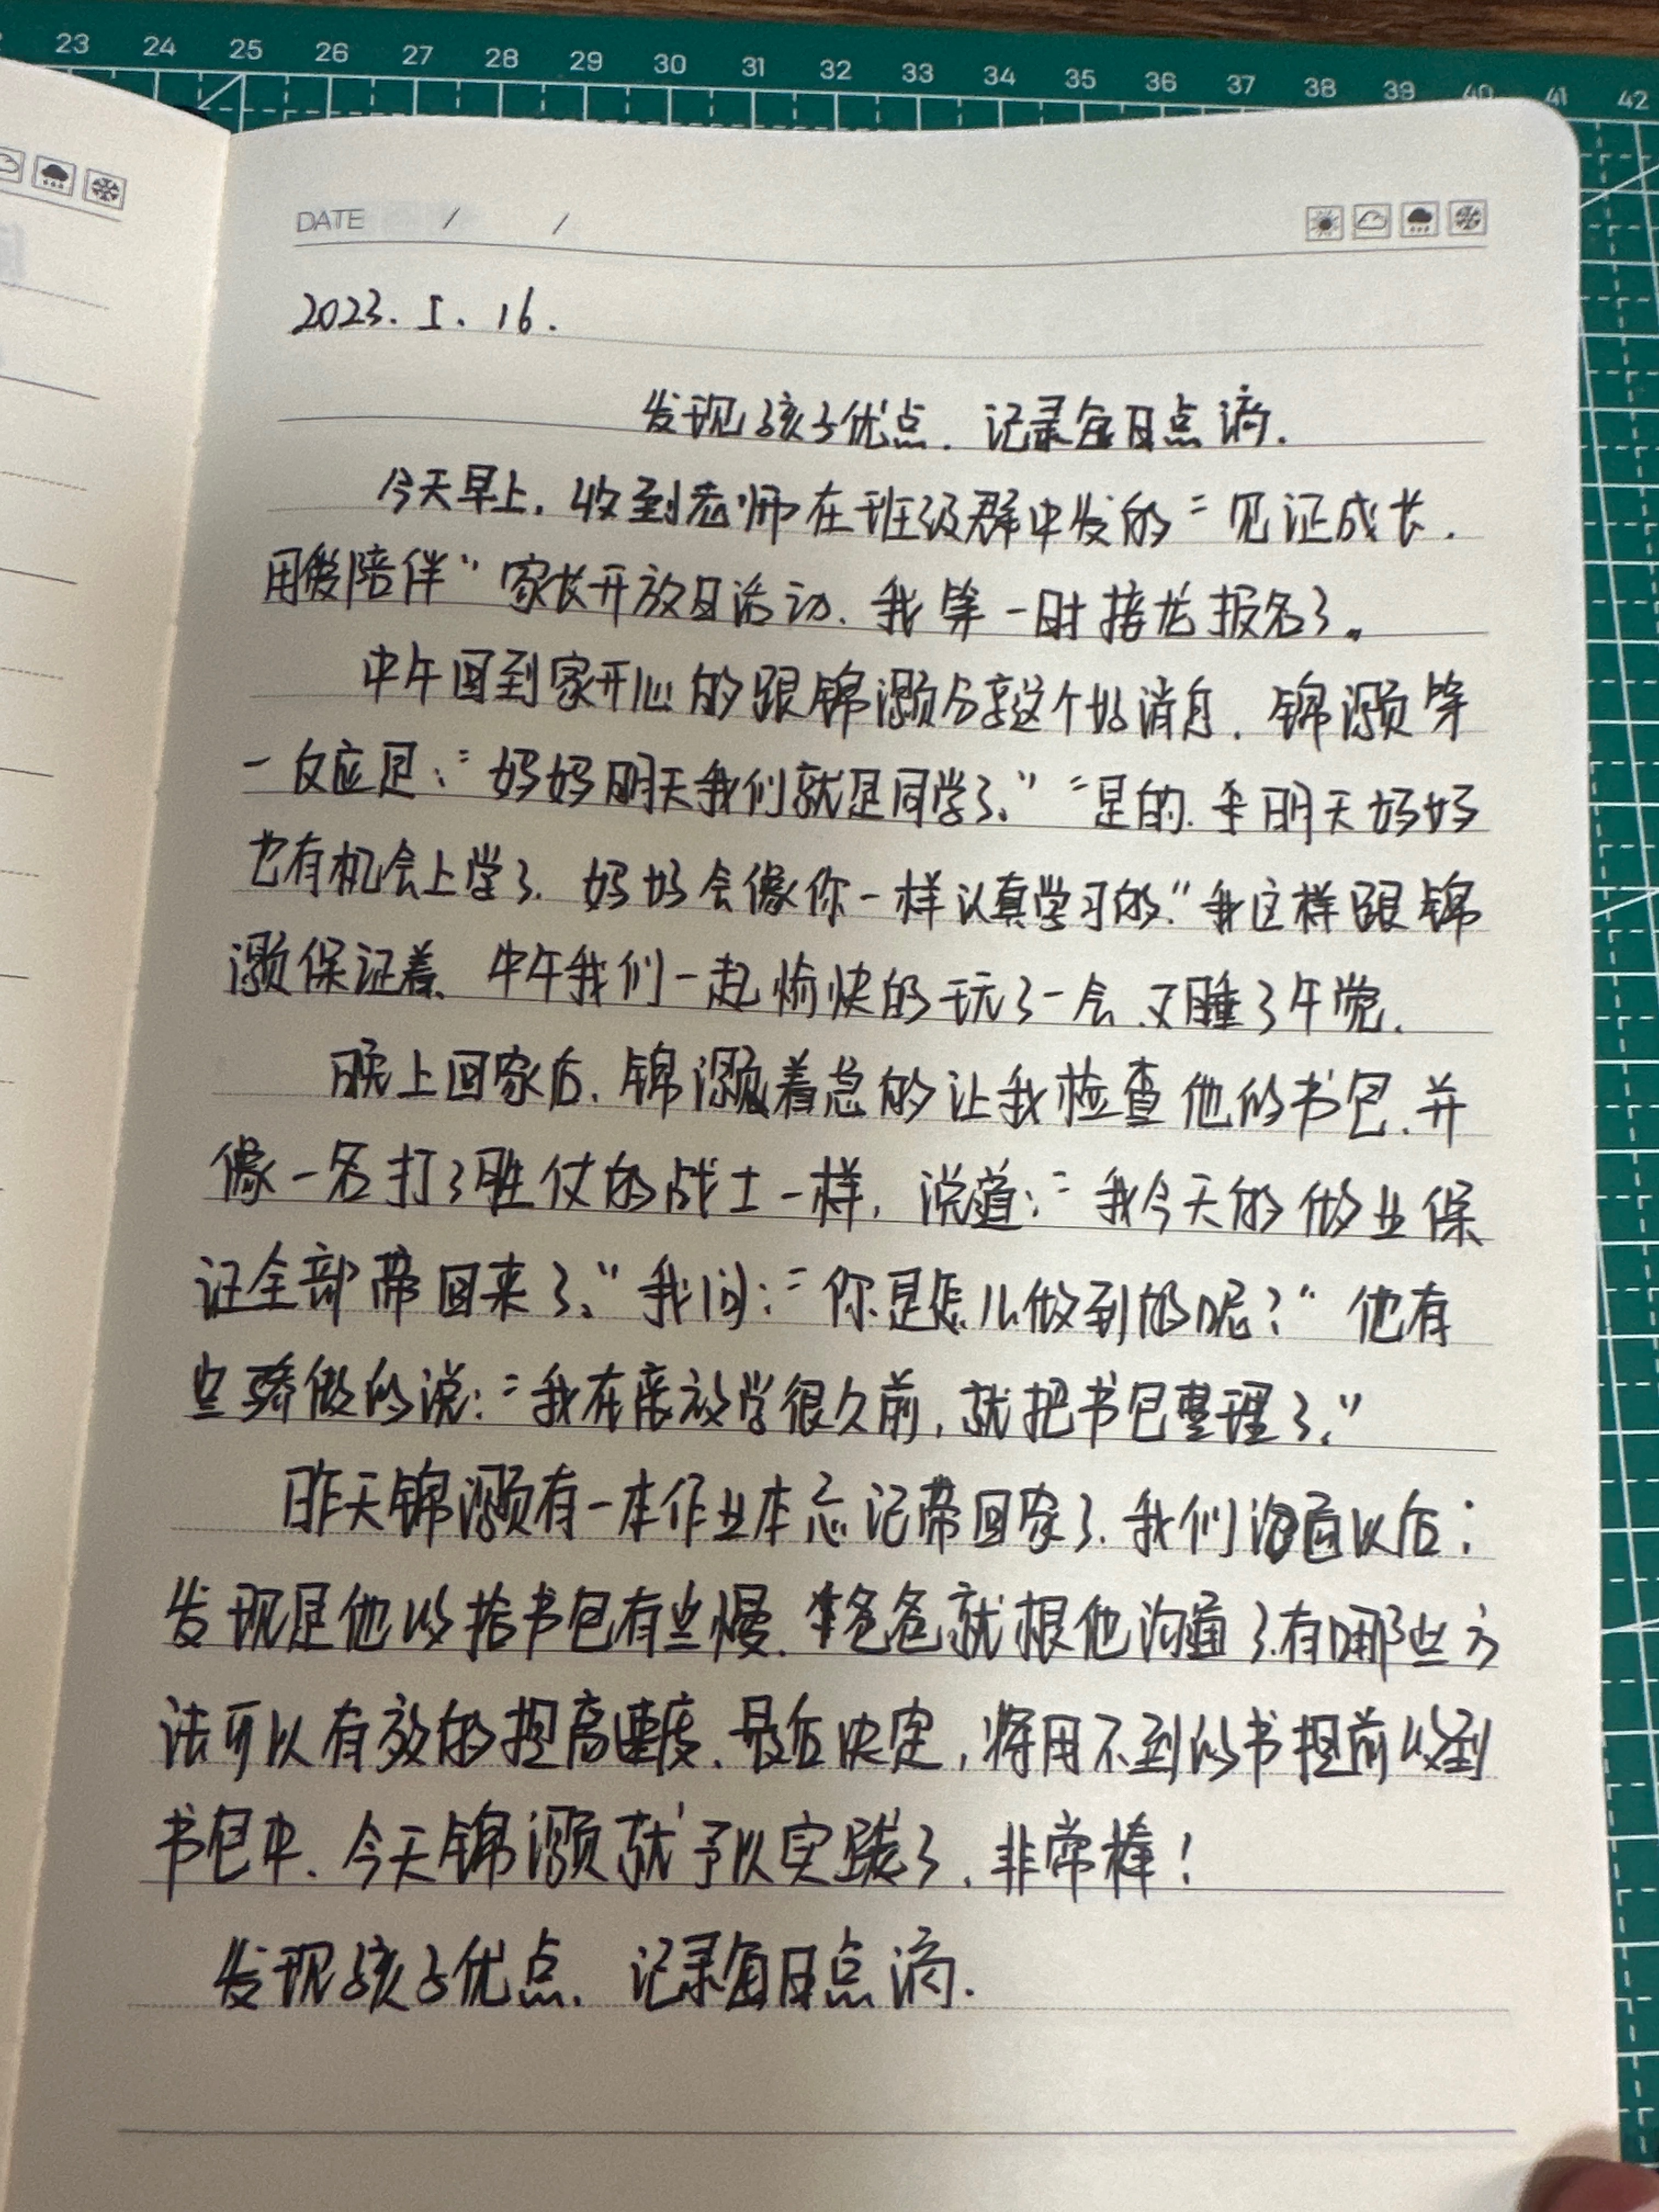 23 24 25 26 27 28 29 30 31 32 33 34 35 36 37 38 39 40 41 42
DATE / /
2023. 5. 16.
发现孩子优点. 记录每日点滴.
今天早上, 收到老师在班级群中发的“见证成长.
用爱陪伴”家长开放日活动. 我第一时接龙报名了。
中午回到家开心的跟锦灏分享这个好消息. 锦灏第
一反应是:“妈妈明天我们就是同学了.”“是的. 明天妈妈
也有机会上学了. 妈妈会像你一样认真学习的.”我这样跟锦
灏保证着. 中午我们一起愉快的玩了一会.又睡了午觉.
晚上回家后. 锦灏着急的让我检查他的书包.并
像一名打了胜仗的战士一样, 说道:“我今天的做业保
证全部带回来了.”我问:“你是怎么做到的呢?”他有
些骄傲的说:“我在离放学很久前, 就把书包整理了.”
昨天锦灏有一本作业本忘记带回家了. 我们沟通以后:
发现是他收拾书包有些慢. 爸爸就根他沟通了.有哪些方
法可以有效的提高速度. 最后决定, 将用不到的书提前收到
书包中. 今天锦灏就予以实践了. 非常棒!
发现孩子优点. 记录每日点滴.